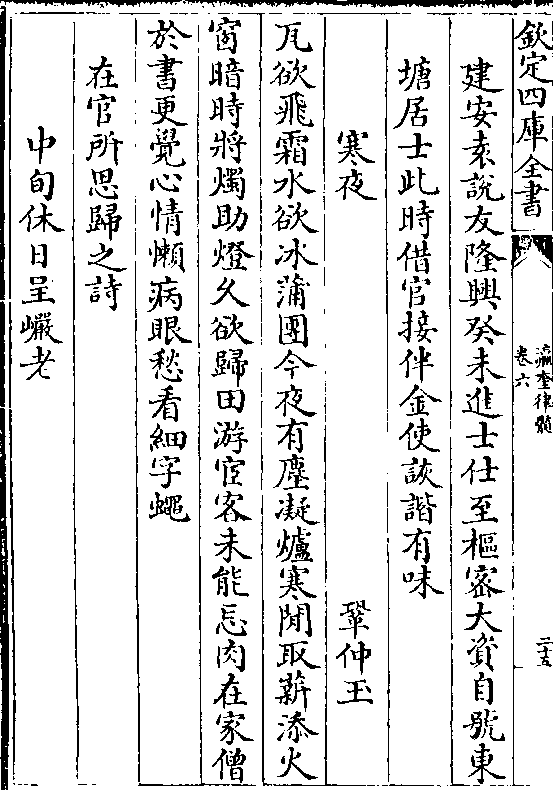 欽定四庫全書
瀛奎律髓
卷六
二十五
建安袁說友隆興癸未進士仕至樞密大資自號東
塘居士此時借官接伴金使詼諧有味
寒夜 鞏仲玉
瓦欲飛霜水欲冰蒲團今夜有塵凝爐寒閒取薪添火
窗暗時將燭助燈久欲歸田游宦客未能忘肉在家僧
於書更覺心情懶病眼愁看細字蠅
在官所思歸之詩
中旬休日呈巘老